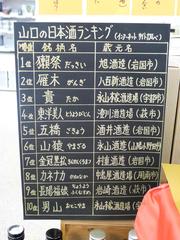 山口の日本酒ランキング
順位 銘柄名 蔵元名
1位 獺祭 だっさい 旭酒造(岩国市)
2位 雁木 がんぎ 八百新酒造(岩国市)
3位 貴 たか 永山本家酒造場(宇部市)
4位 東洋美人 澄川酒造場(萩市)
5位 五橋 ごきょう 酒井酒造(岩国市)
6位 山猿 やまざる 永山酒造
7位 金冠黒松 村重酒造(岩国市)
8位 カネナカ かねなか 中島屋酒造場(周南市)
9位 長陽福娘 岩崎酒造(萩市)
10位 男山 おとこやま 永山本家酒造場